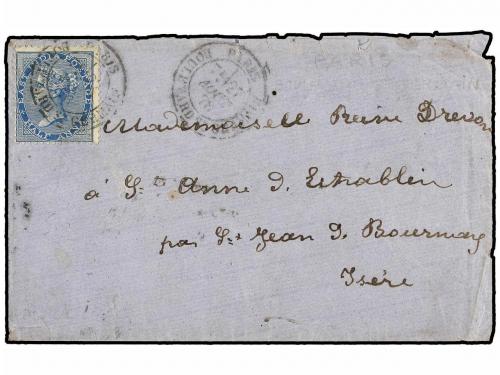 EAST INDIA POSTAGE
HALF ANNA
PARIS
PARIS
Mademoiselle Reine Drevon
à St Anne d. Estrablin
par St Jean d. Bournay
Isère